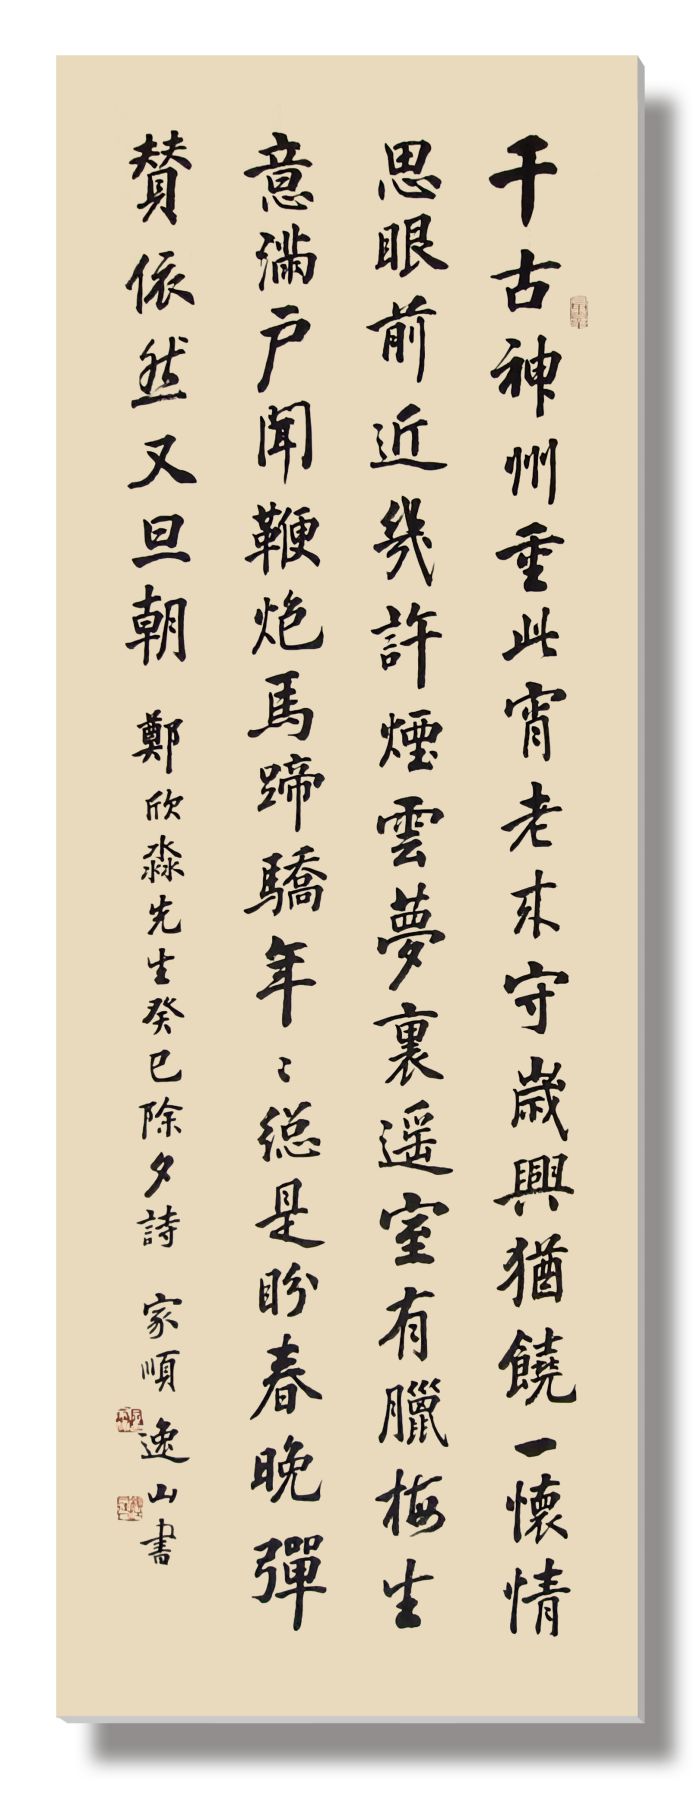 千古神州重此宵老来守歲興猶饒一懷情
思眼前近幾許煙雲夢裏遥室有臘梅生
意滿户聞鞭炮馬蹄驕年〻總是盼春晚彈
賛依然又旦朝 鄭欣淼先生癸巳除夕詩 家順 逸山書